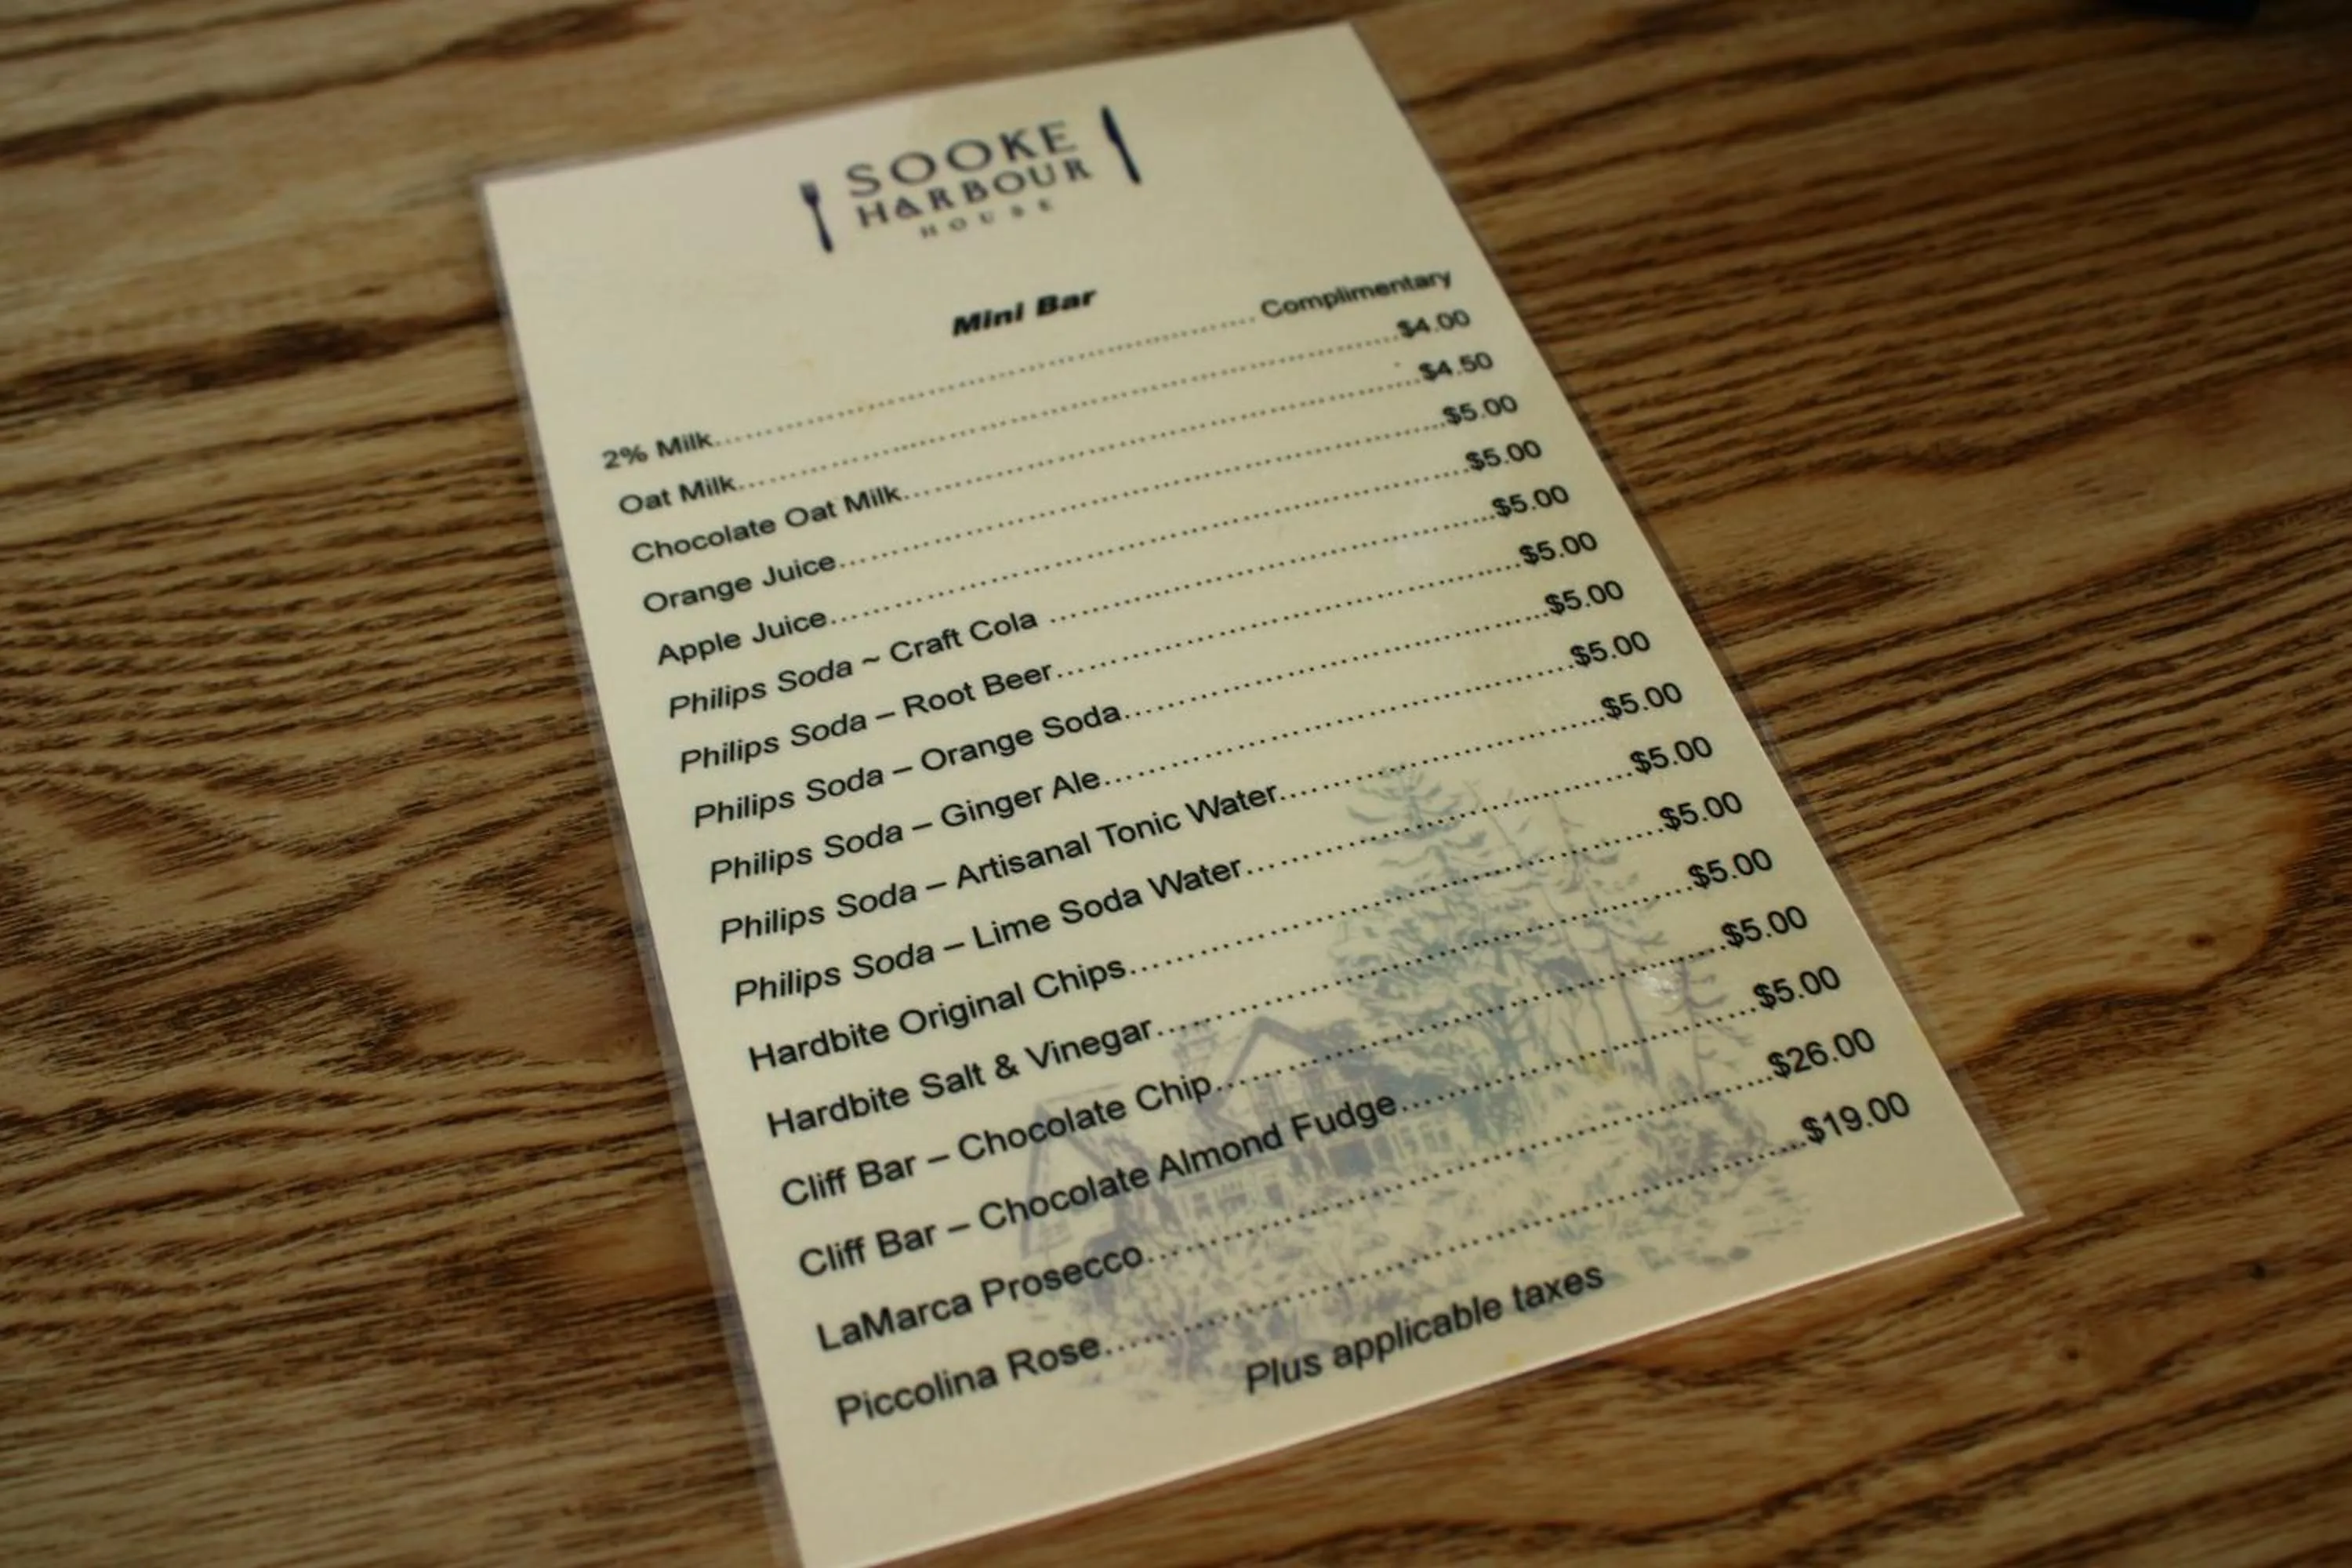 SOOKE
HARBOUR
HOUSE
Mini Bar
2% Milk.......... Complimentary
Oat Milk..........$4.00
Chocolate Oat Milk..........$4.50
Orange Juice..........$5.00
Apple Juice..........$5.00
Philips Soda ~ Craft Cola ..........$5.00
Philips Soda – Root Beer..........$5.00
Philips Soda – Orange Soda..........$5.00
Philips Soda – Ginger Ale..........$5.00
Philips Soda – Artisanal Tonic Water..........$5.00
Philips Soda – Lime Soda Water..........$5.00
Hardbite Original Chips..........$5.00
Hardbite Salt & Vinegar..........$5.00
Cliff Bar – Chocolate Chip..........$5.00
Cliff Bar – Chocolate Almond Fudge..........$5.00
LaMarca Prosecco..........$26.00
Piccolina Rose..........$19.00
Plus applicable taxes